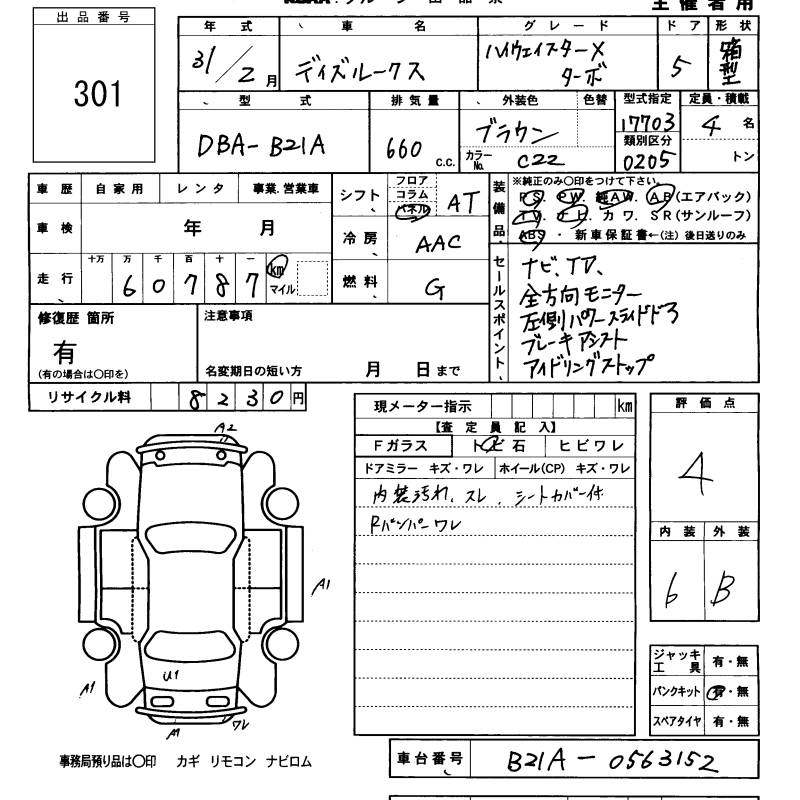 出品番号
301
主催者用
年式 車名 グレード ドア 形状
31/2月 デイズルークス ハイウェイスターX ターボ 5 箱型
型式 排気量 外装色 色替 型式指定 定員・積載
DBA-B21A 660 c.c. ブラウン 17703 4 名
カラーNo. C22 類別区分 0205 トン
車歴 自家用 レンタ 事業.営業車
車検 年 月
走行 十万 万 千 百 十 一 km
60787 マイル
シフト フロア コラム パネル AT
冷房 AAC
燃料 G
装備品
※純正のみ〇印をつけて下さい。
PS. PW. 純AW. AB(エアバック)
TV. ナビ. カワ. SR(サンルーフ)
ABS ・ 新車保証書←(注) 後日送りのみ
セールスポイント
ナビ、TV、
全方向モニター
左側パワースライドドア
ブレーキアシスト
アイドリングストップ
修復歴 箇所
有
(有の場合は〇印を)
注意事項
名変期日の短い方 月 日まで
リサイクル料 8230円
現メーター指示 km
【査定員記入】
Fガラス トビ石 ヒビワレ
ドアミラー キズ・ワレ ホイール(CP) キズ・ワレ
内装汚れ、スレ、シートカバー付
Rバンパーワレ
評価点
4
内装 外装
6 B
ジャッキ工具 有・無
パンクキット 有・無
スペアタイヤ 有・無
A2
A1
U1
A1
A1
ワレ
事務局預り品は〇印 カギ リモコン ナビロム
車台番号 B21A-0563152